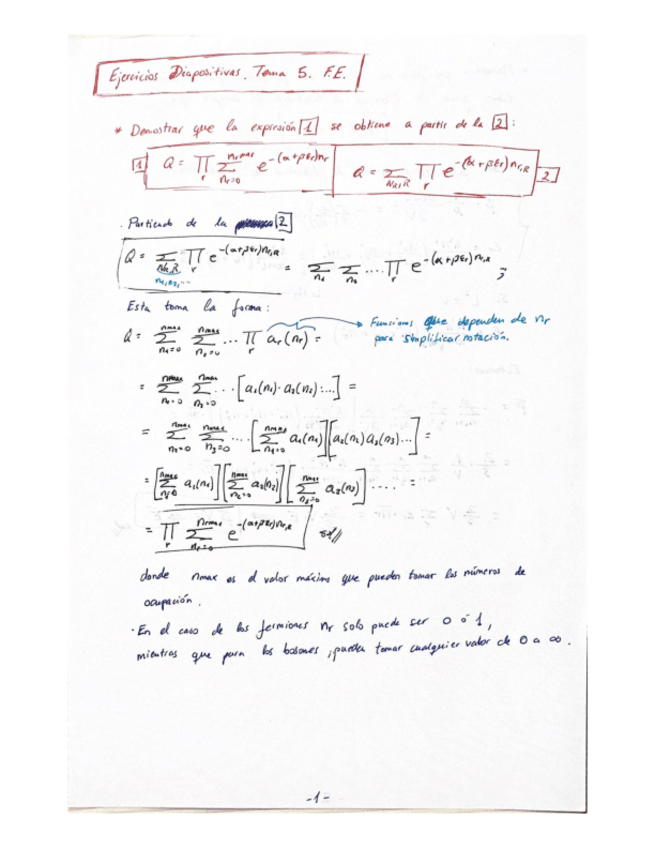 Ejercicios Diapositivas. Tema 5. F.E.
* Demostrar que la expresión [1] se obtiene a partir de la [2]:
[1] Q = ∏_r ∑_{n_r=0}^{n_r max} e^{-(α+βε_r)n_r} Q = ∑_{N_R,R} ∏_r e^{-(α+βε_r)n_{r,R}} [2]
. Partiendo de la [2]
Q = ∑_{N_R,R} ∏_r e^{-(α+βε_r)n_{r,R}} = ∑_{n_1} ∑_{n_2} ... ∏_r e^{-(α+βε_r)n_{r,R}} ;
n_1,n_2,...
Esta toma la forma:
Q = ∑_{n_1=0}^{n max} ∑_{n_2=0}^{n max} ... ∏_r a_r(n_r) = → Funciones que dependen de n_r
para simplificar notación.
= ∑_{n_1=0}^{n max} ∑_{n_2=0}^{n max} ... [a_1(n_1)·a_2(n_2)·...] =
= ∑_{n_2=0}^{n max} ∑_{n_3=0}^{n max} ... [∑_{n_1=0}^{n max} a_1(n_1)][a_2(n_2) a_3(n_3)...] =
= [∑_{n_1=0}^{n max} a_1(n_1)][∑_{n_2=0}^{n max} a_2(n_2)][∑_{n_3=0}^{n max} a_3(n_3)] .... =
= ∏_r ∑_{n_r=0}^{n_r max} e^{-(α+βε_r)n_{r,R}}
donde n max es el valor máximo que pueden tomar los números de
ocupación.
· En el caso de los fermiones n_r solo puede ser 0 ó 1,
mientras que para los bosones, pueden tomar cualquier valor de 0 a ∞.
-1-